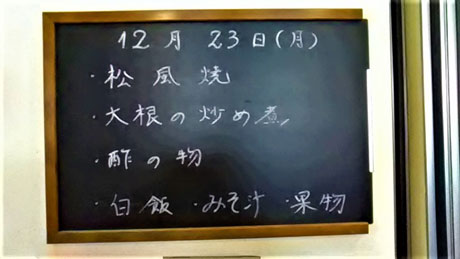 12月23日(月)
・松風焼
・大根の炒め煮
・酢の物
・白飯 ・みそ汁 ・果物